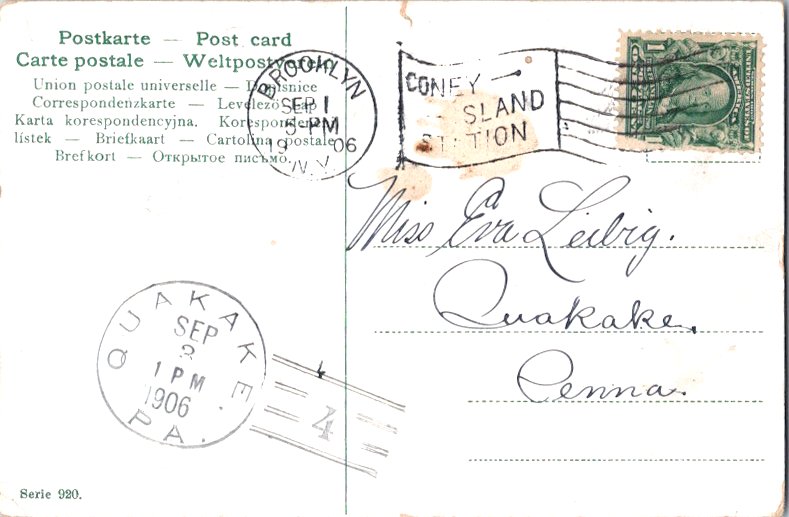 Postkarte — Post card
Carte postale — Weltpostverein
Union postale universelle — Dopisnice
Correspondenzkarte — Levelező-Lap
Karta korespondencyjna. Korespondenční
lístek — Briefkaart — Cartolina postale
Brefkort — Открытое письмо.
BROOKLYN
SEP 1
5-PM
19 06
N.Y.
CONEY
ISLAND
STATION
1 1
Miss Eva Leibig.
Quakake.
Penna.
QUAKAKE.
SEP
2
1 PM
1906
PA.
4
4
Serie 920.